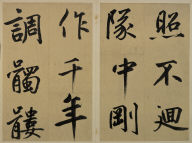 照不迴
隊中剛
作千年
調髑髏